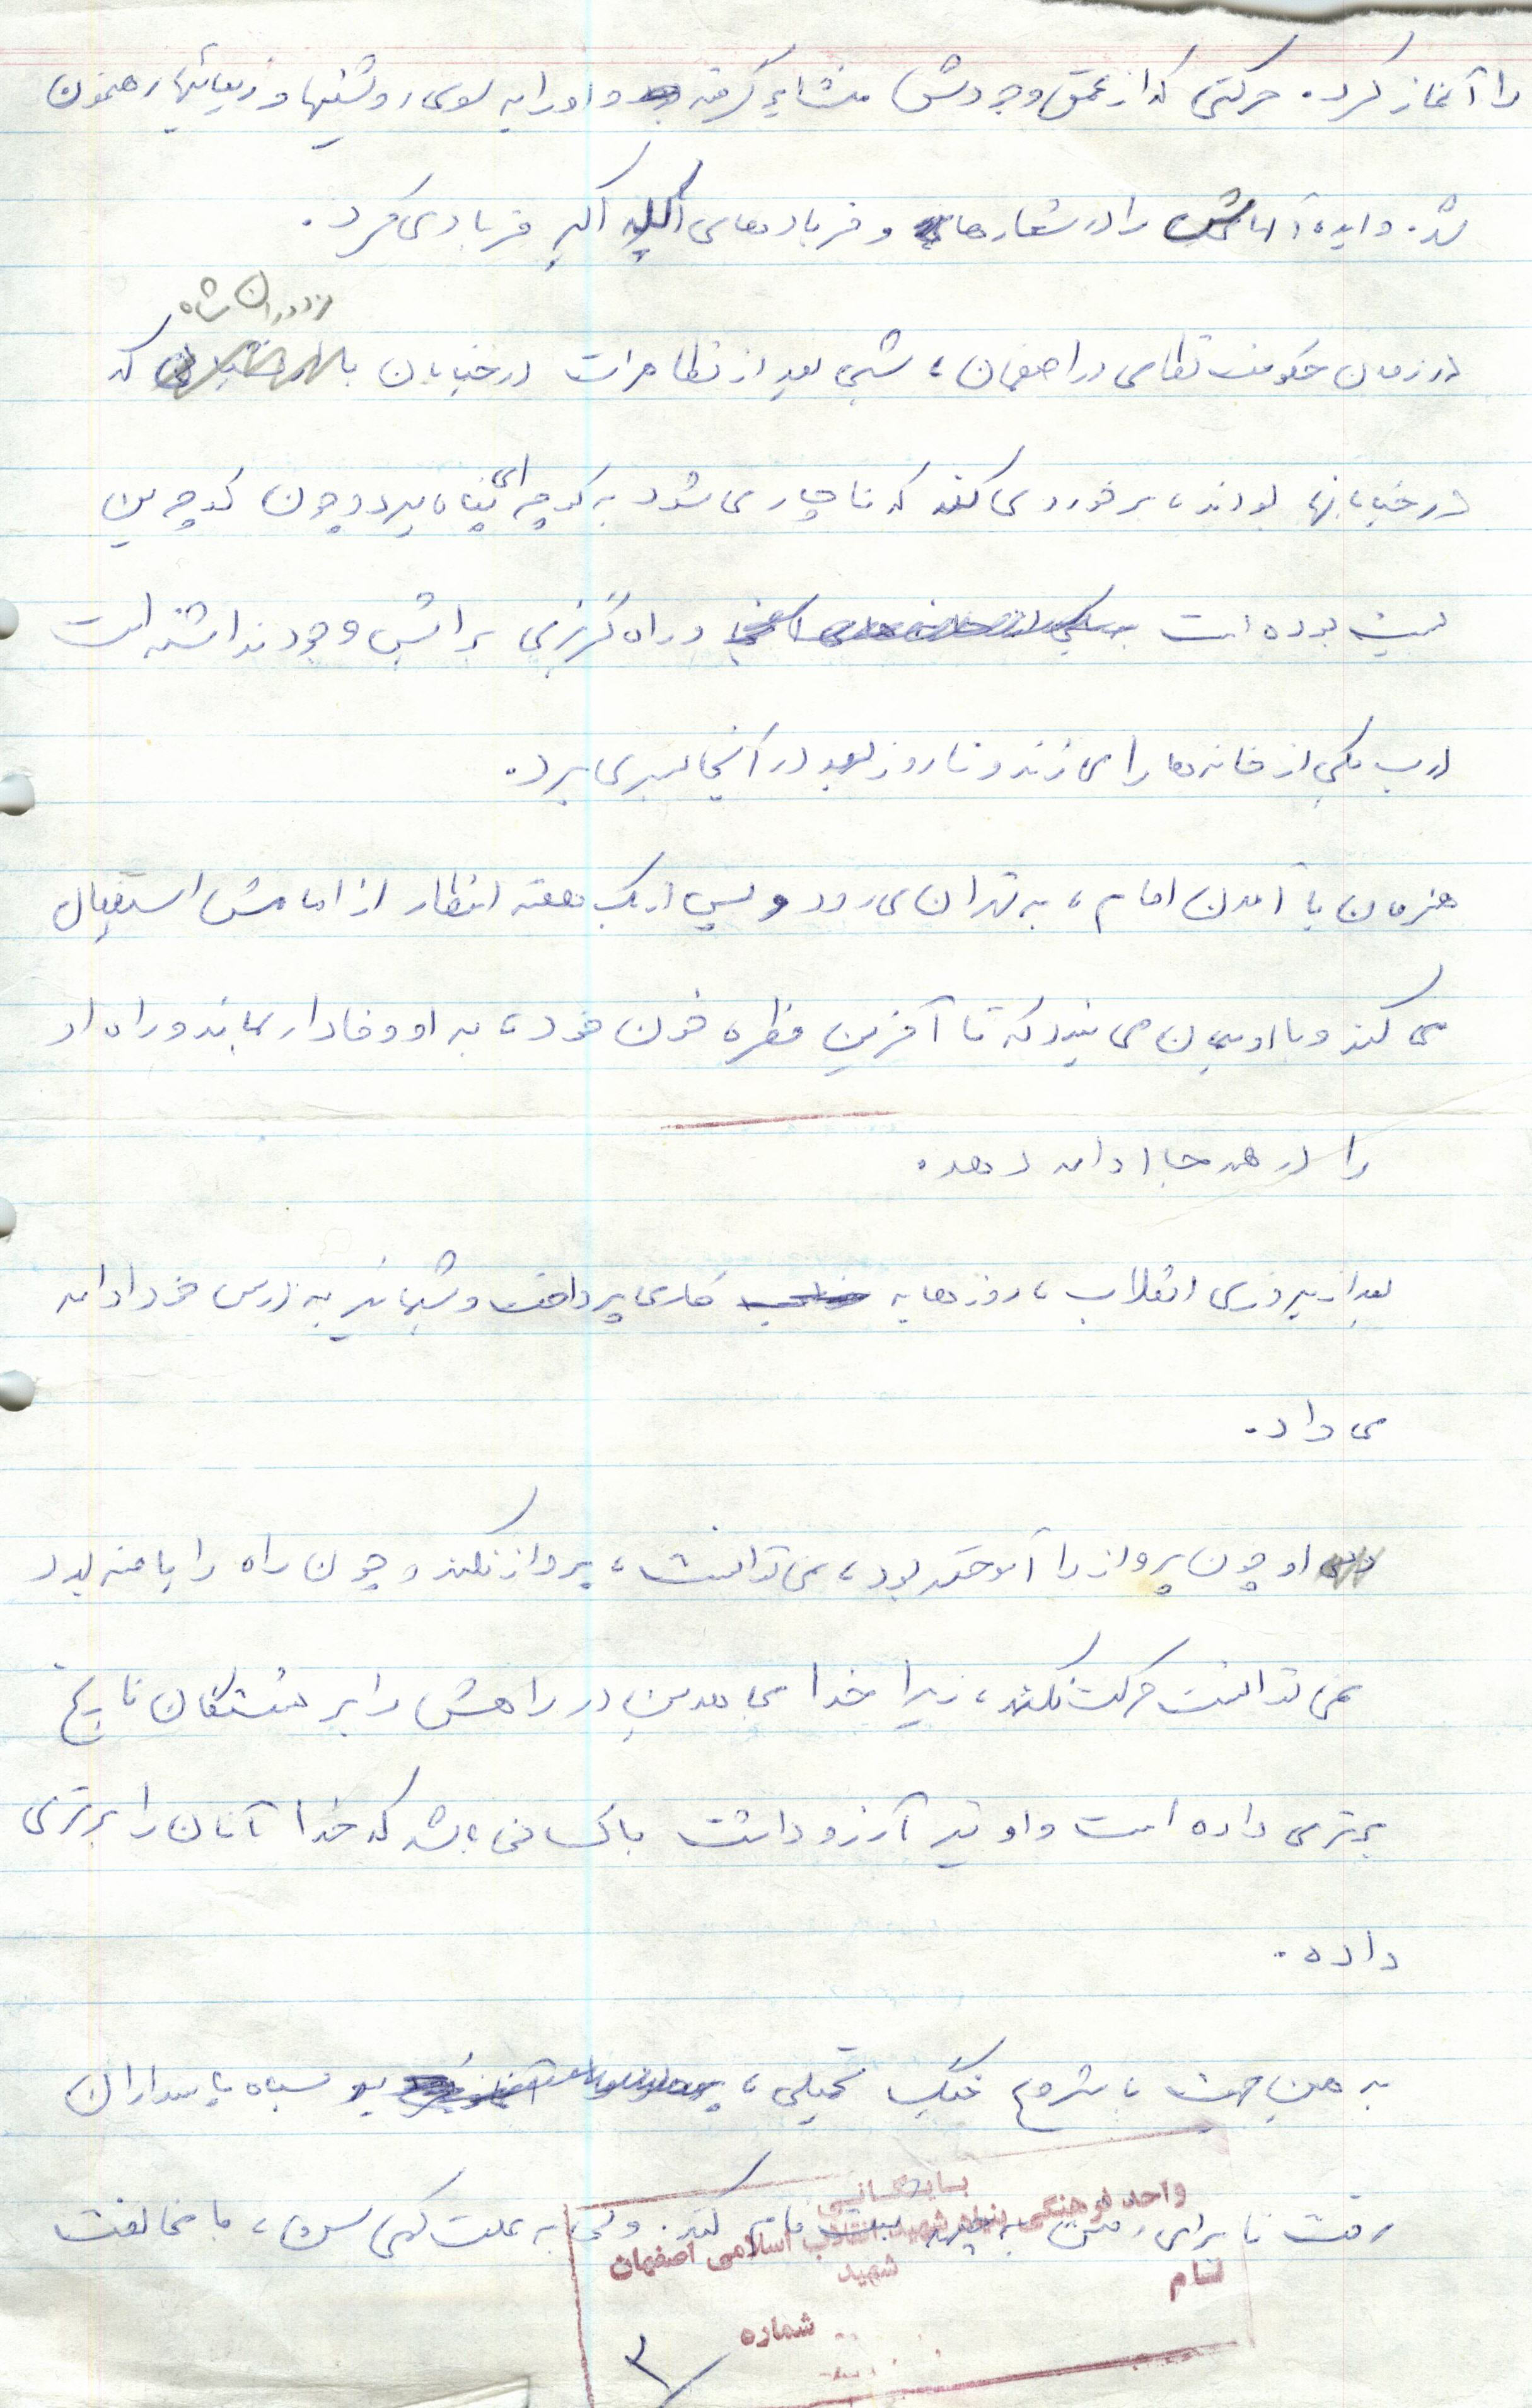 را آغاز کرد. حرکتی که از عمق وجودش منشاء گرفته و او را به سوی روشنیها و زیبائیها رهنمون
شد. و ایده‌آلهایش را در شعارها و فریادهای الله اکبر فریاد می‌کرد.
از دوران شاه
در زمان حکومت نظامی در اصفهان، شبی بعد از تظاهرات در خیابان با که
در خیابانها بودند، برخورد می‌کند که ناچار می‌شود به کوچه‌ای پناه ببرد و چون کوچه بن
بست بوده است و راه گریزی برایش وجود نداشته است
درب یکی از خانه‌ها را می‌زند و تا روز بعد در آنجا بسر می‌برد.
همزمان با آمدن امام، به تهران می‌رود و پس از یک هفته انتظار از امامش استقبال
می‌کند و با او پیمان می‌بندد که تا آخرین قطره خون خود، به او وفادار بماند و راه او
را در همه جا ادامه دهد.
بعد از پیروزی انقلاب، روزها به کار می‌پرداخت و شبها نیز به درس خود ادامه
می‌داد.
او چون پرواز را آموخته بود، نمی‌توانست، پرواز نکند و چون راه را یافته بود
نمی‌توانست حرکت نکند، زیرا خدا مجاهدین در راهش را بر نشستگان تاریخ
برتری داده است و او نیز آرزو داشت با کسانی باشد که خدا آنان را برتری
داده.
به همین جهت با شروع جنگ تحمیلی، به سپاه پاسداران
رفت تا برای رفتن به جبهه ثبت نام کند. ولی به علت کمی سن، با مخالفت
بایگانی
واحد فرهنگی بنیاد شهید انقلاب اسلامی اصفهان
نام شهید
شماره
۳